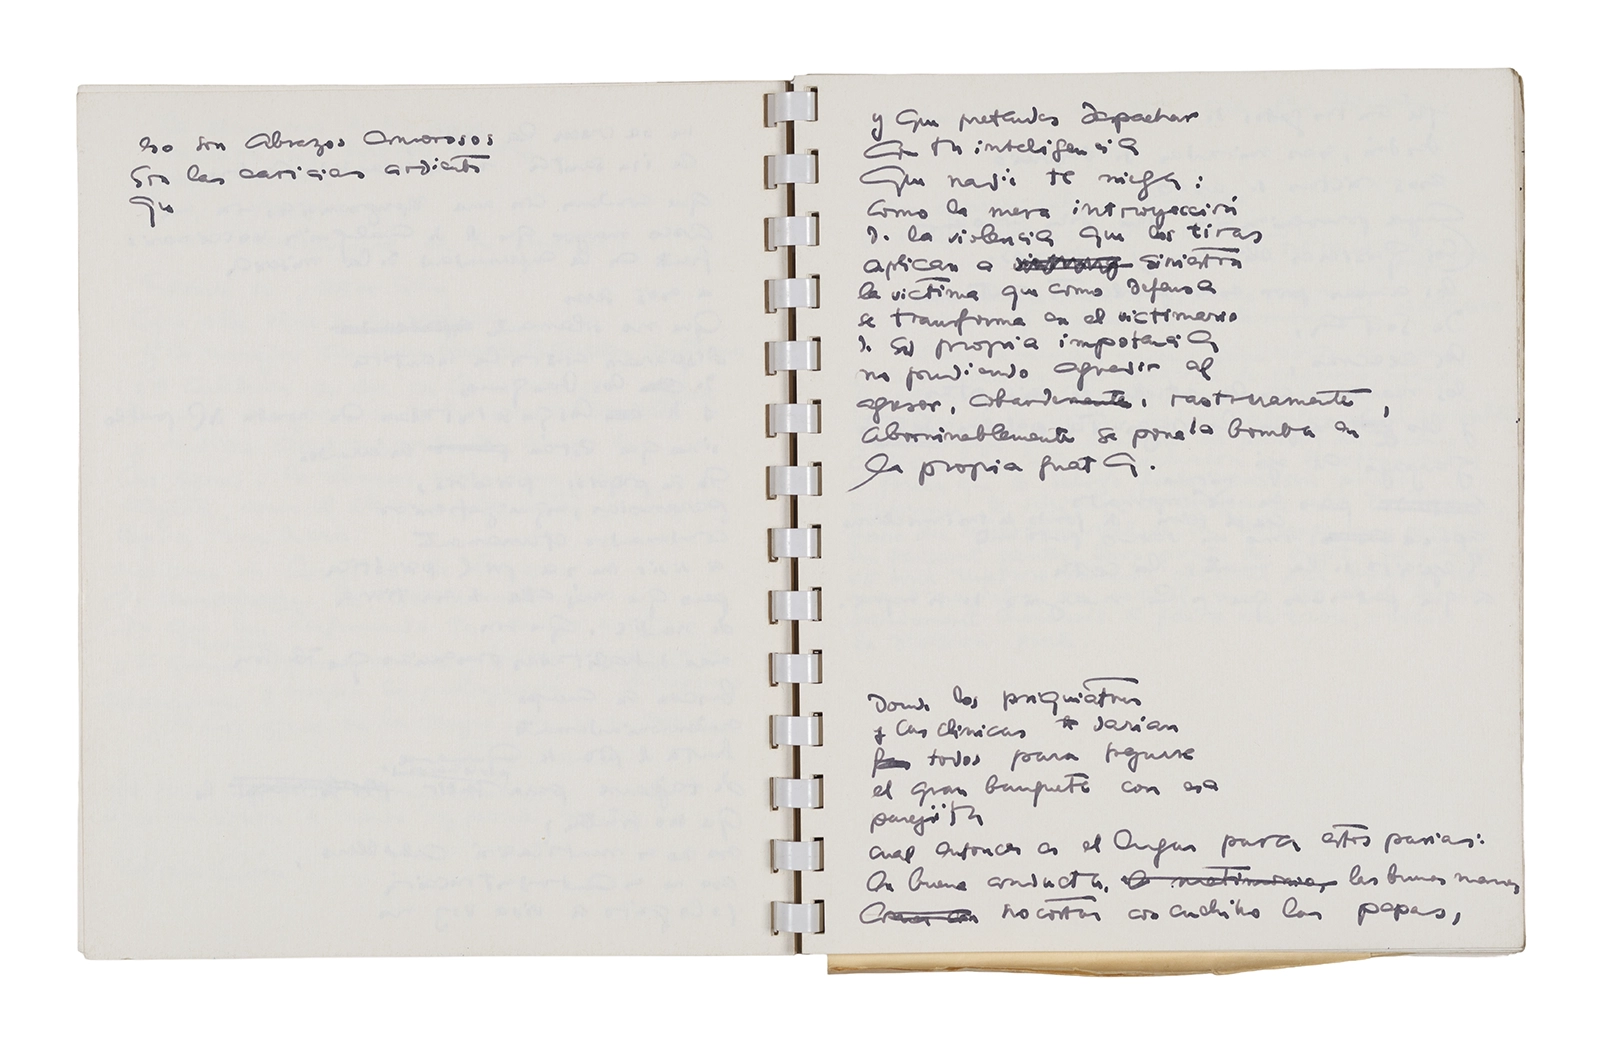 no son Abrazos Amorosos
Son las caricias ardientes
Que
y Que pretendes Despachar
Con tu inteligencia
Que nadie te niega:
como la mera introyección
De la violencia Que los tiras
aplican a siniestra
la victima que como Defensa
se transforma en el victimario
De su propia impotencia
no pudiendo agredir al
agresor, cobardemente, rastreramente,
Abominablemente se pone la bomba en
la propia guata.
Donde los psiquiatras
y las clinicas te darian
todos para seguirse
el gran banquete con esa
parejita
cual entonces es el lugar para estos parias:
la buena conducta, la matrimonia, las buenas maneras
no cortar con cuchillo las papas,